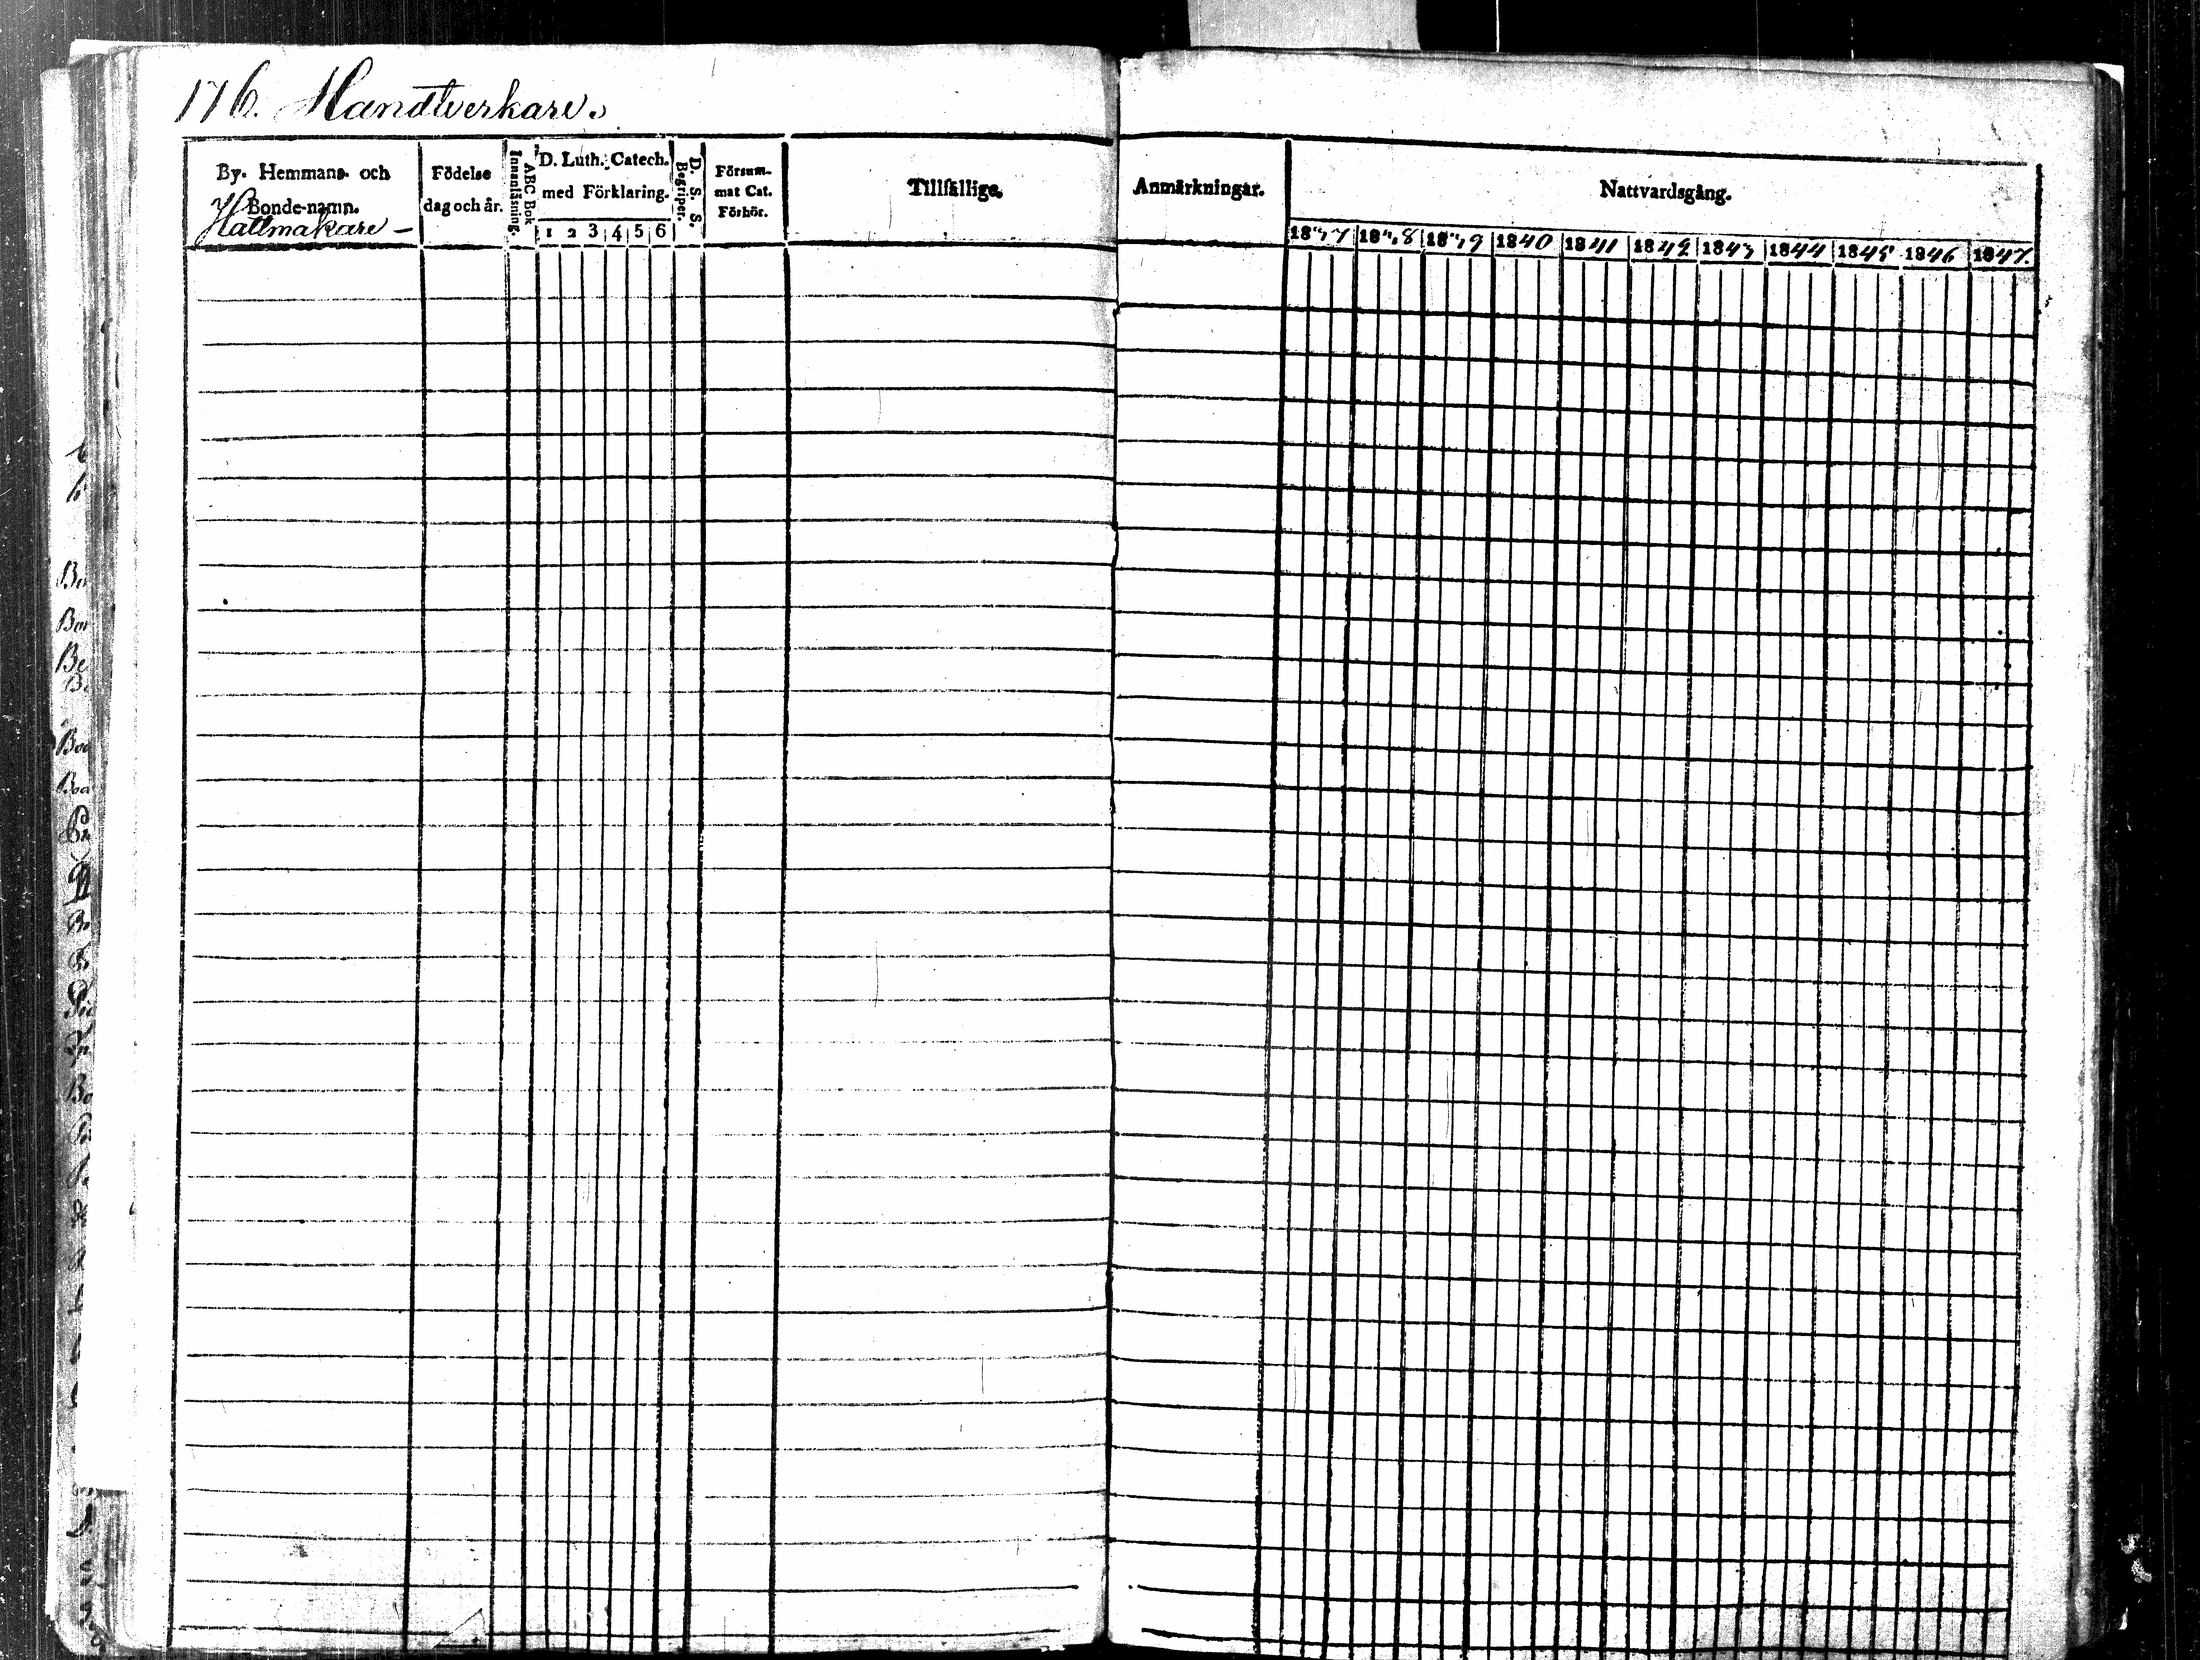 176. Handtverkare.
By. Hemmans- och Bonde-namn.
Hattmakare –
Födelse dag och år.
ABC Bok
Innanläsning.
D. Luth. Catech. med Förklaring.
1 2 3 4 5 6
D. S. S.
Begriper.
Försum-
mat Cat.
Förhör.
Tillfällige.
Anmärkningar.
Nattvardsgång.
1837 1838 1839 1840 1841 1842 1843 1844 1845 1846 1847
Bo
Bon
Be
B.
Boo
Boo
Bo